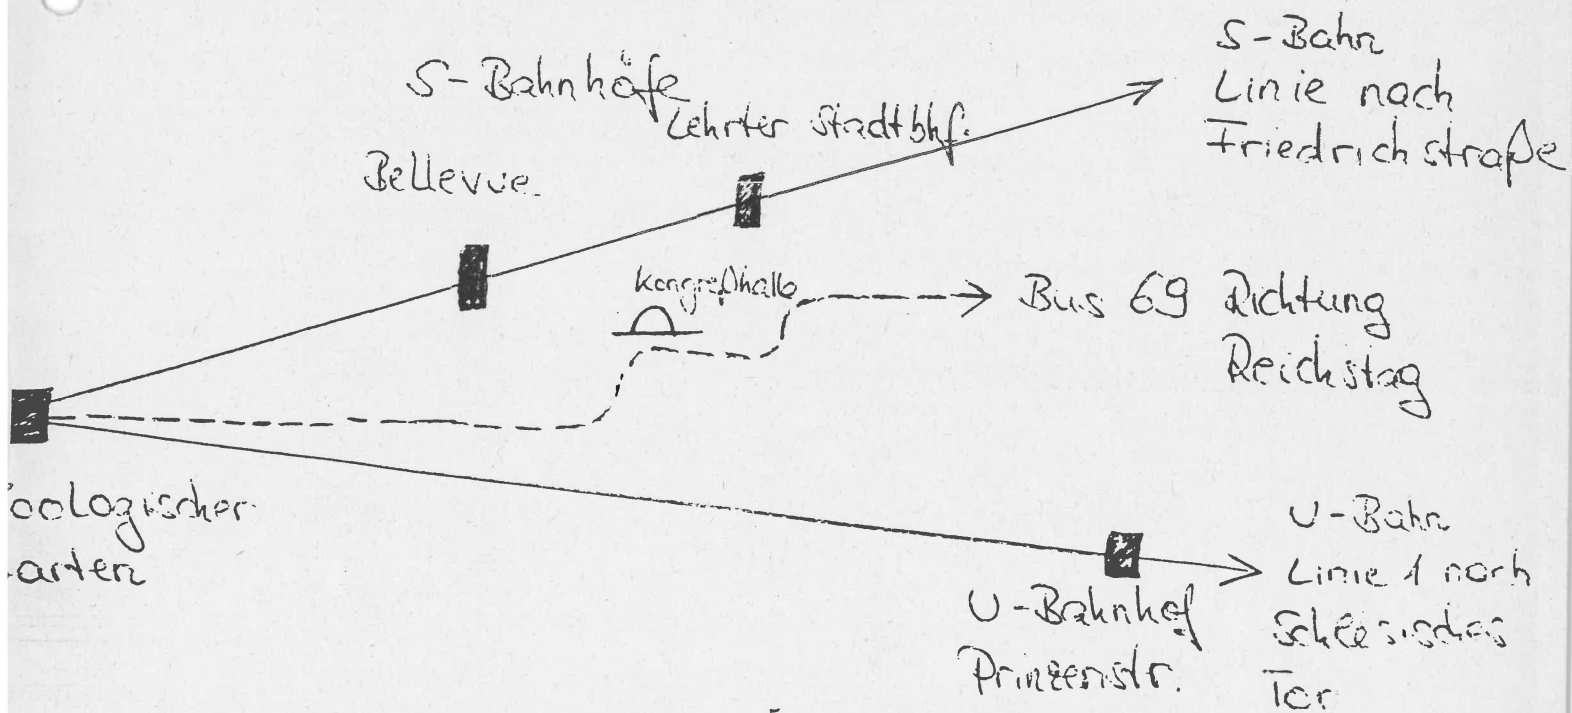 S-Bahnhöfe
Lehrter Stadtbhf.
Bellevue
S-Bahn
Linie nach
Friedrichstraße
Kongreßhalle
Bus 69 Richtung
Reichstag
oologischer
arten
U-Bahnhof
Prinzenstr.
U-Bahn
Linie 1 nach
Schlesisches
Tor